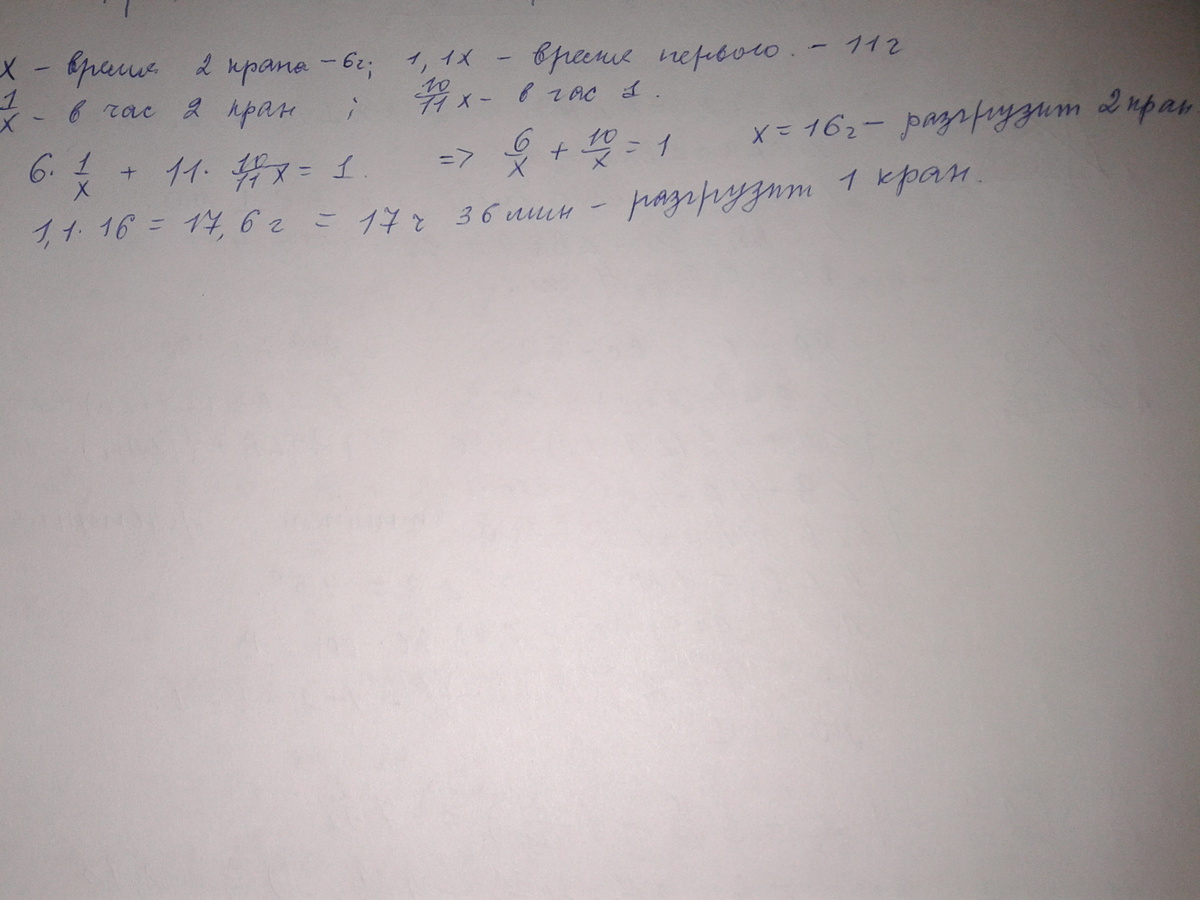 x - время 2 крана - 6ч; 1,1x - время первого. - 11ч
1/x - в час 2 кран ; 10/11x - в час 1.
6 · 1/x + 11 · 10/11x = 1. => 6/x + 10/x = 1 x = 16ч - разгрузит 2 кран
1,1 · 16 = 17,6ч = 17ч 36 мин - разгрузит 1 кран.